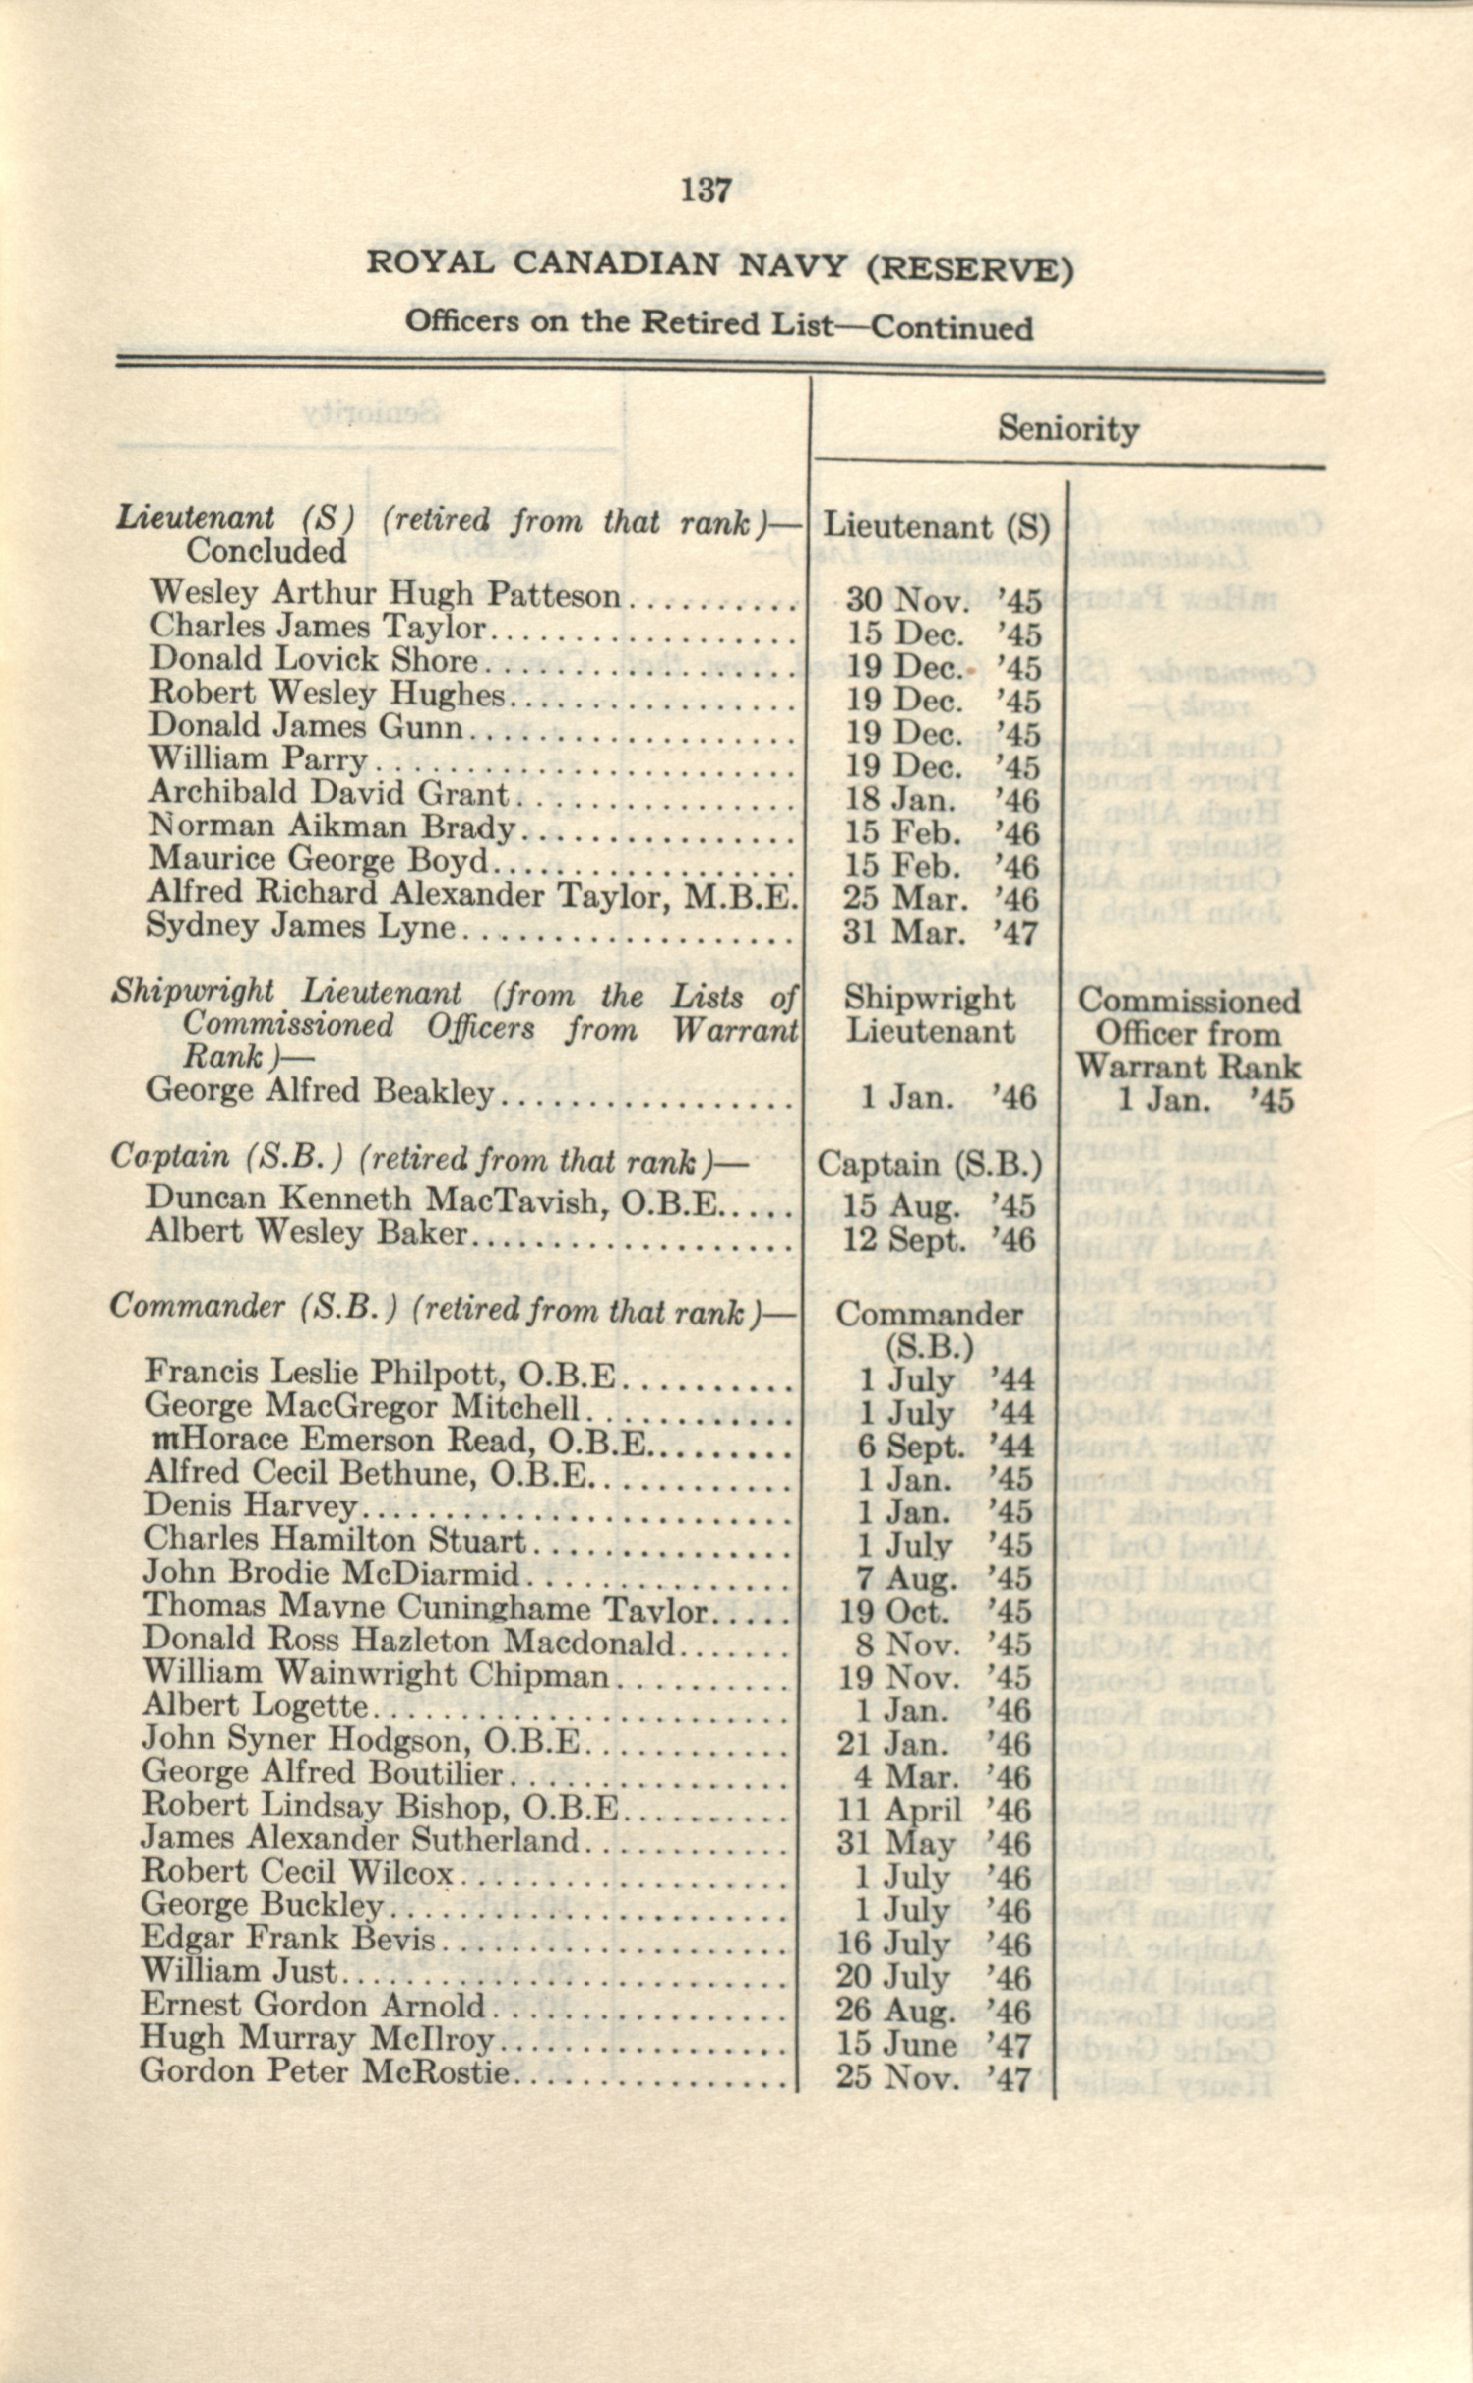 137
ROYAL CANADIAN NAVY (RESERVE)
Officers on the Retired List—Continued
Seniority
Lieutenant (S) (retired from that rank)— Lieutenant (S)
Concluded
Wesley Arthur Hugh Patteson.......... 30 Nov. ’45
Charles James Taylor.................. 15 Dec. ’45
Donald Lovick Shore................... 19 Dec. ’45
Robert Wesley Hughes................. 19 Dec. ’45
Donald James Gunn.................... 19 Dec. ’45
William Parry......................... 19 Dec. ’45
Archibald David Grant................. 18 Jan. ’46
Norman Aikman Brady................ 15 Feb. ’46
Maurice George Boyd.................. 15 Feb. ’46
Alfred Richard Alexander Taylor, M.B.E. 25 Mar. ’46
Sydney James Lyne.................... 31 Mar. ’47
Shipwright Lieutenant (from the Lists of Shipwright Commissioned
Commissioned Officers from Warrant Lieutenant Officer from
Rank)— Warrant Rank
George Alfred Beakley.................. 1 Jan. ’46 1 Jan. ’45
Captain (S.B.) (retired from that rank)— Captain (S.B.)
Duncan Kenneth MacTavish, O.B.E..... 15 Aug. ’45
Albert Wesley Baker.................... 12 Sept. ’46
Commander (S.B.) (retired from that rank)— Commander
(S.B.)
Francis Leslie Philpott, O.B.E........... 1 July ’44
George MacGregor Mitchell............. 1 July ’44
mHorace Emerson Read, O.B.E......... 6 Sept. ’44
Alfred Cecil Bethune, O.B.E............ 1 Jan. ’45
Denis Harvey.......................... 1 Jan. ’45
Charles Hamilton Stuart................ 1 July ’45
John Brodie McDiarmid................ 7 Aug. ’45
Thomas Mayne Cuninghame Taylor..... 19 Oct. ’45
Donald Ross Hazleton Macdonald....... 8 Nov. ’45
William Wainwright Chipman........... 19 Nov. ’45
Albert Logette......................... 1 Jan. ’46
John Syner Hodgson, O.B.E............. 21 Jan. ’46
George Alfred Boutilier................. 4 Mar. ’46
Robert Lindsay Bishop, O.B.E.......... 11 April ’46
James Alexander Sutherland............ 31 May ’46
Robert Cecil Wilcox.................... 1 July ’46
George Buckley........................ 1 July ’46
Edgar Frank Bevis..................... 16 July ’46
William Just........................... 20 July ’46
Ernest Gordon Arnold.................. 26 Aug. ’46
Hugh Murray McIlroy.................. 15 June ’47
Gordon Peter McRostie................. 25 Nov. ’47